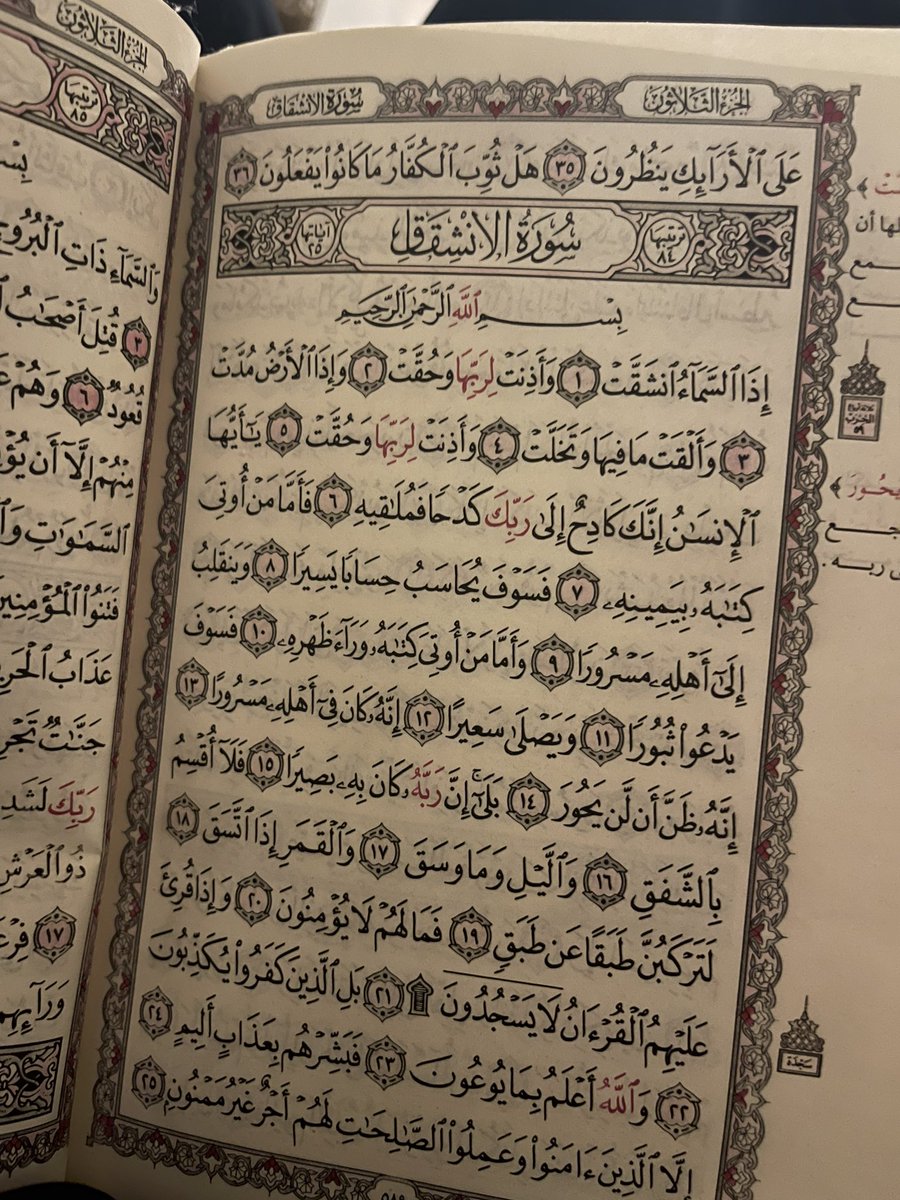 الجزء الثلاثون
سورة الانشقاق
عَلَى ٱلْأَرَآئِكِ يَنظُرُونَ ٣٥ هَلْ ثُوِّبَ ٱلْكُفَّارُ مَا كَانُوا۟ يَفْعَلُونَ ٣٦
ترتيبها ٨٤
سُورَةُ الانشِقَاقِ
آياتها ٢٥
بِسْمِ ٱللَّهِ ٱلرَّحْمَٰنِ ٱلرَّحِيمِ
إِذَا ٱلسَّمَآءُ ٱنشَقَّتْ ١ وَأَذِنَتْ لِرَبِّهَا وَحُقَّتْ ٢ وَإِذَا ٱلْأَرْضُ مُدَّتْ
٣ وَأَلْقَتْ مَا فِيهَا وَتَخَلَّتْ ٤ وَأَذِنَتْ لِرَبِّهَا وَحُقَّتْ ٥ يَٰٓأَيُّهَا
ٱلْإِنسَٰنُ إِنَّكَ كَادِحٌ إِلَىٰ رَبِّكَ كَدْحًا فَمُلَٰقِيهِ ٦ فَأَمَّا مَنْ أُوتِىَ
كِتَٰبَهُۥ بِيَمِينِهِۦ ٧ فَسَوْفَ يُحَاسَبُ حِسَابًا يَسِيرًا ٨ وَيَنقَلِبُ
إِلَىٰٓ أَهْلِهِۦ مَسْرُورًا ٩ وَأَمَّا مَنْ أُوتِىَ كِتَٰبَهُۥ وَرَآءَ ظَهْرِهِۦ ١٠ فَسَوْفَ
يَدْعُوا۟ ثُبُورًا ١١ وَيَصْلَىٰ سَعِيرًا ١٢ إِنَّهُۥ كَانَ فِىٓ أَهْلِهِۦ مَسْرُورًا ١٣
إِنَّهُۥ ظَنَّ أَن لَّن يَحُورَ ١٤ بَلَىٰٓ إِنَّ رَبَّهُۥ كَانَ بِهِۦ بَصِيرًا ١٥ فَلَآ أُقْسِمُ
بِٱلشَّفَقِ ١٦ وَٱلَّيْلِ وَمَا وَسَقَ ١٧ وَٱلْقَمَرِ إِذَا ٱتَّسَقَ ١٨
لَتَرْكَبُنَّ طَبَقًا عَن طَبَقٍ ١٩ فَمَا لَهُمْ لَا يُؤْمِنُونَ ٢٠ وَإِذَا قُرِئَ
عَلَيْهِمُ ٱلْقُرْءَانُ لَا يَسْجُدُونَ ۩ ٢١ بَلِ ٱلَّذِينَ كَفَرُوا۟ يُكَذِّبُونَ
٢٢ وَٱللَّهُ أَعْلَمُ بِمَا يُوعُونَ ٢٣ فَبَشِّرْهُم بِعَذَابٍ أَلِيمٍ ٢٤
إِلَّا ٱلَّذِينَ ءَامَنُوا۟ وَعَمِلُوا۟ ٱلصَّٰلِحَٰتِ لَهُمْ أَجْرٌ غَيْرُ مَمْنُونٍۭ ٢٥
سجدة
الجزء الثلاثون
ترتيبها ٨٥
وَٱلسَّمَآءِ ذَاتِ ٱلْبُرُوجِ
٣ قُتِلَ أَصْحَٰبُ
قُعُودٌ ٦ وَهُمْ
مِنْهُمْ إِلَّآ أَن
ٱلسَّمَٰوَٰتِ
فَتَنُوا۟ ٱلْمُؤْمِنِينَ
عَذَابُ
جَنَّٰتٌ تَجْرِى
رَبِّكَ
ذُو ٱلْعَرْشِ
١٧
وَرَآئِهِم